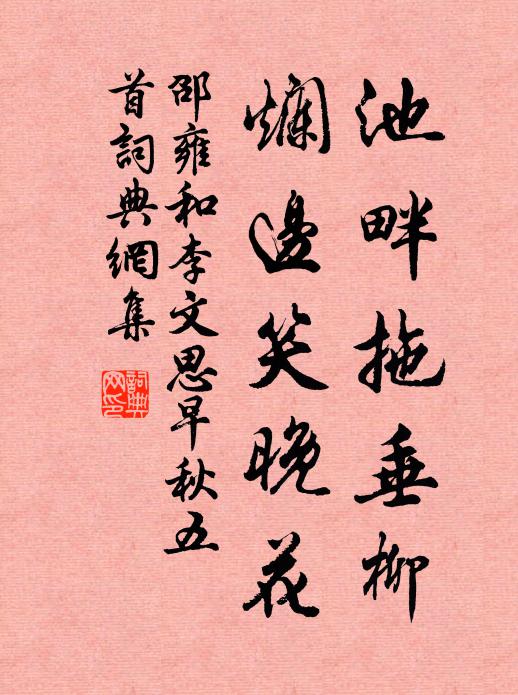 池畔拖垂柳
爛邊笑晚花
邵雍和李文思早秋五
首詞典網集
詞典網印